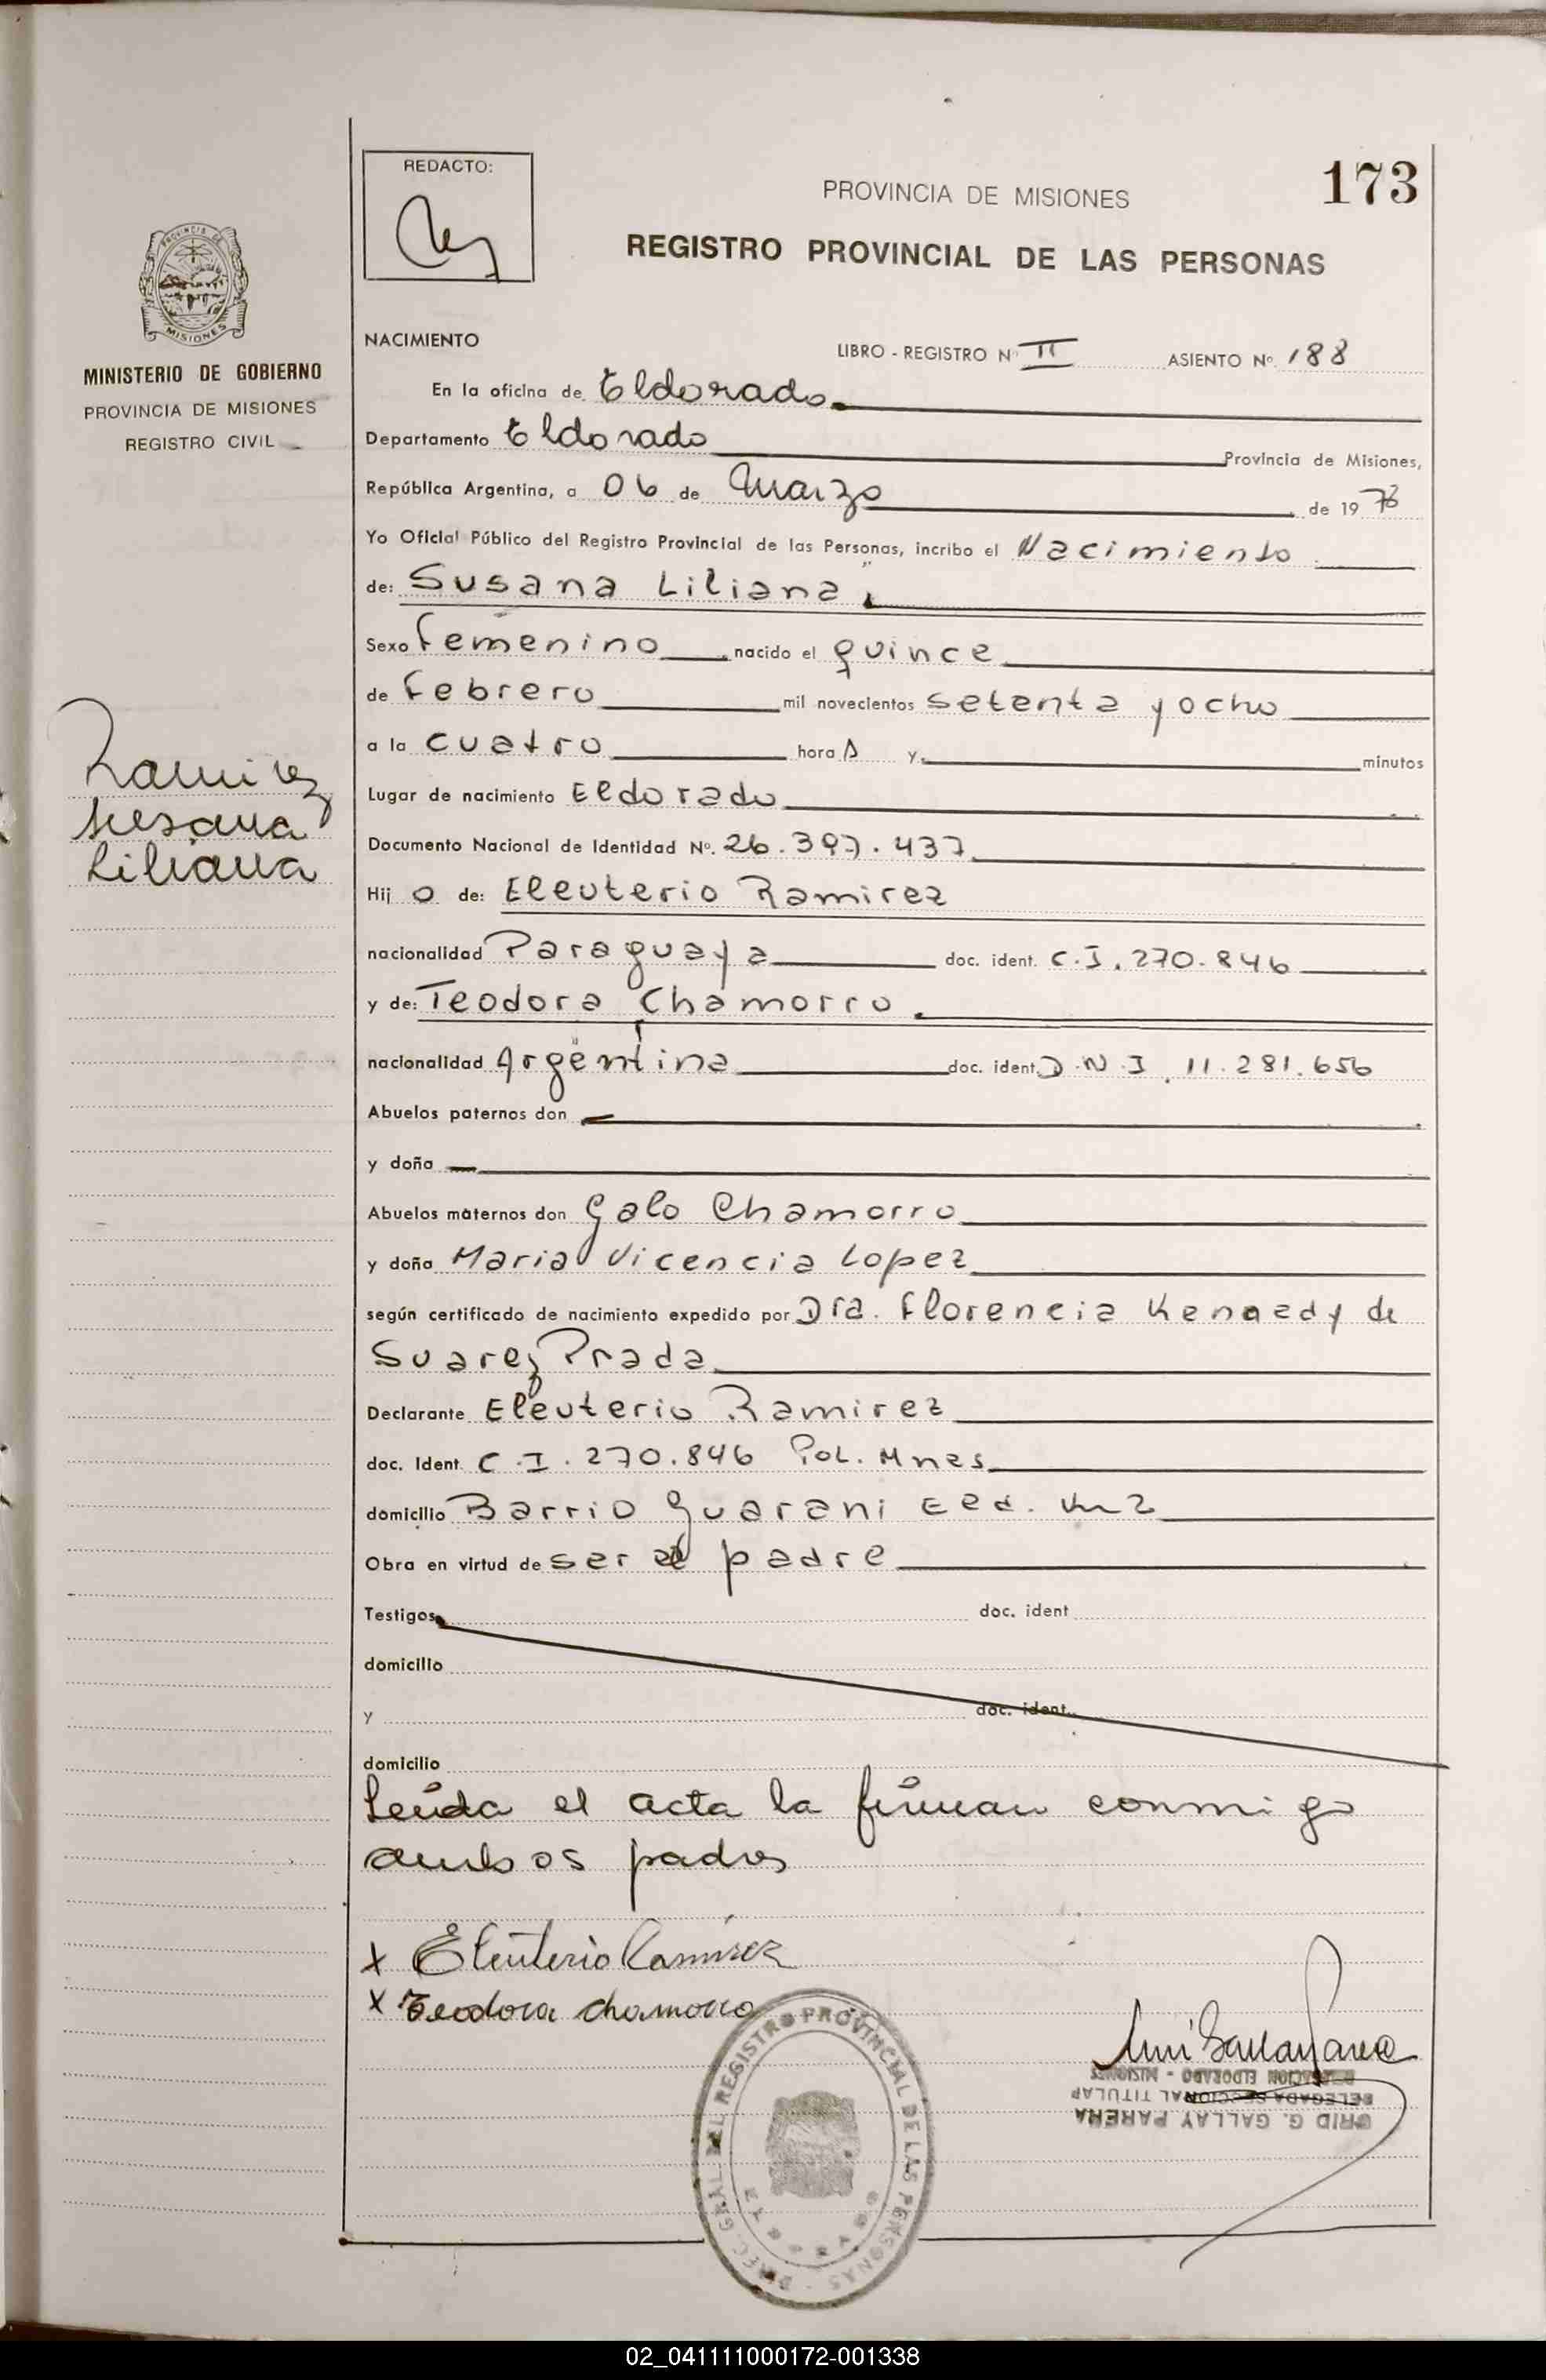 REDACTO:
PROVINCIA DE MISIONES
173
REGISTRO PROVINCIAL DE LAS PERSONAS
PROVINCIA DE MISIONES
MINISTERIO DE GOBIERNO
PROVINCIA DE MISIONES
REGISTRO CIVIL
Ramirez
Susana
Liliana
NACIMIENTO
LIBRO - REGISTRO Nº II ASIENTO Nº 188
En la oficina de Eldorado
Departamento Eldorado Provincia de Misiones,
República Argentina, a 06 de Marzo de 1978
Yo Oficial Público del Registro Provincial de las Personas, incribo el Nacimiento
de: Susana Liliana
Sexo Femenino nacido el quince
de Febrero mil novecientos setenta y ocho
a la cuatro hora s y minutos
Lugar de nacimiento Eldorado
Documento Nacional de Identidad Nº. 26.397.437
Hij o de: Eleuterio Ramirez
nacionalidad Paraguaya doc. ident. C.I. 270.846
y de: Teodora Chamorro
nacionalidad Argentina doc. ident. D.N.I. 11.281.656
Abuelos paternos don —
y doña —
Abuelos maternos don Galo Chamorro
y doña Maria Vicencia Lopez
según certificado de nacimiento expedido por Dra. Florencia Kennedy de
Suarez Prada
Declarante Eleuterio Ramirez
doc. Ident C.I. 270.846 Pol. Mnes
domicilio Barrio Guarani Eld. Km 2
Obra en virtud de ser el padre
Testigos doc. ident
domicilio
y doc. ident.
domicilio
Leída el acta la firman conmigo
ambos padres
x Eleuterio Ramirez
x Teodora chamorro
DIREC. GRAL DEL REGISTRO PROVINCIAL DE LAS PERSONAS
ELDORADO
DELEGACION ELDORADO - MISIONES
DELEGADA SECCIONAL TITULAR
G. GALLAY PARERA
02_041111000172-001338